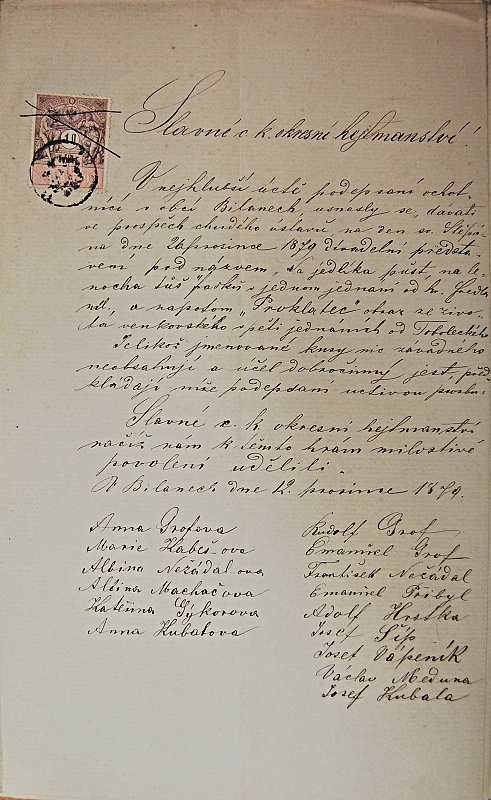 Slavné c. k. okresní hejtmanství!
V nejhlubší úctě podepsaní ochot-
níci v obci Bilanech usnesly se, davati
ve prospěch chudého ústavu, na den sv. Štěpá-
na dne 26 prosince 1879 divadelní předsta-
vení pod názvem, "Na jedlíka půst, na le-
nocha kůš" fraška v jednom jednaní od
a napotom "Proklatec" obraz ze živo-
ta venkovského v pěti jednaních od
Jelikož jmenované kusy nic závadného
neobsahují a účel dobročinný jest, před-
kládají níže podepsaní uctivou prosbu:
Slavné c. k. okresní hejtmanství
račiž nám k těmto hrám milostivé
povolení udělili.
V Bilanech dne 12. prosince 1879.
Anna Grofova
Marie Habeš-ova
Albina Nežádalova
Albina Machačova
Kateřina Sýkorova
Anna Kubatova
Rudolf Grof
Emanuel Grof
František Nežádal
Emanuel Přibyl
Adolf Hrstka
Josef Šíp
Josef Vápeník
Václav Meduna
Josef Kubala